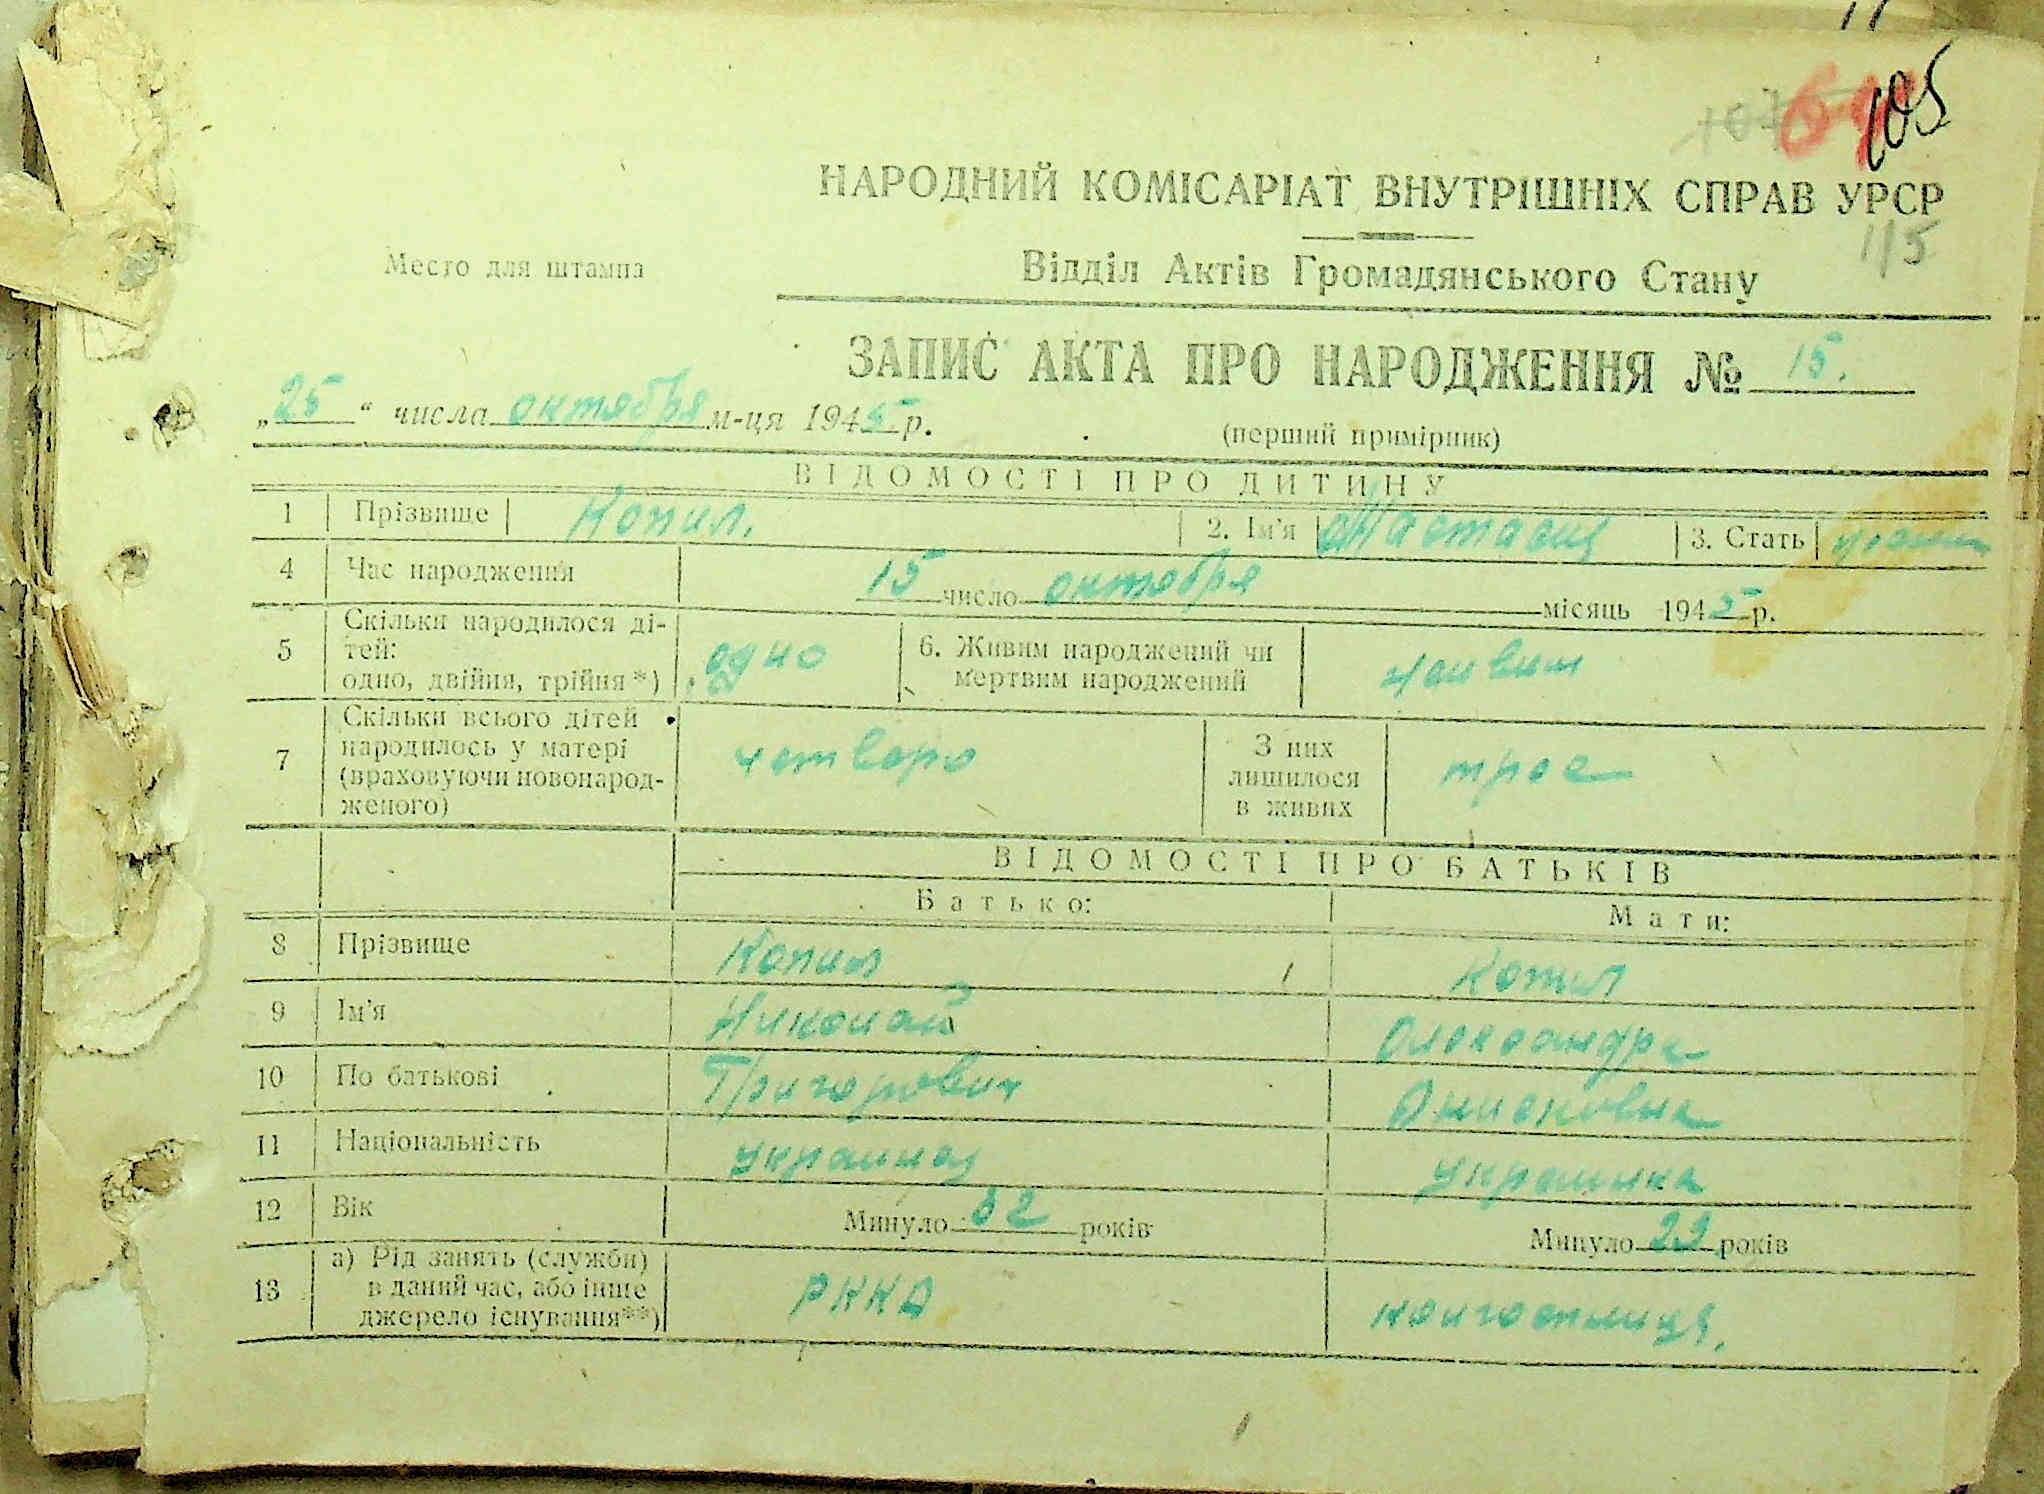 105
НАРОДНИЙ КОМІСАРІАТ ВНУТРІШНІХ СПРАВ УРСР
115
Место для штампа
Відділ Актів Громадянського Стану
ЗАПИС АКТА ПРО НАРОДЖЕННЯ № 15.
„25“ числа октября м-ця 1945 р.
(перший примірник)
ВІДОМОСТІ ПРО ДИТИНУ
1 Прізвище Копил. 2. Ім'я Анастасия 3. Стать
4 Час народження 15 число октября місяць 1945 р.
5 Скільки народилося ді-
тей:
одно, двійня, трійня*) одно
6. Живим народжений чи
мертвим народжений живим
7 Скільки всього дітей
народилось у матері
(враховуючи новонарод-
женого) четверо
З них
лишилося
в живих трое
ВІДОМОСТІ ПРО БАТЬКІВ
Батько: Мати:
8 Прізвище Копил Копил
9 Ім'я Николай Олександра
10 По батькові Григорович
11 Національність украинец украинка
12 Вік Минуло 32 років Минуло років
13 а) Рід занять (служби)
в даний час, або інше
джерело існування**) РККА колгоспниця.